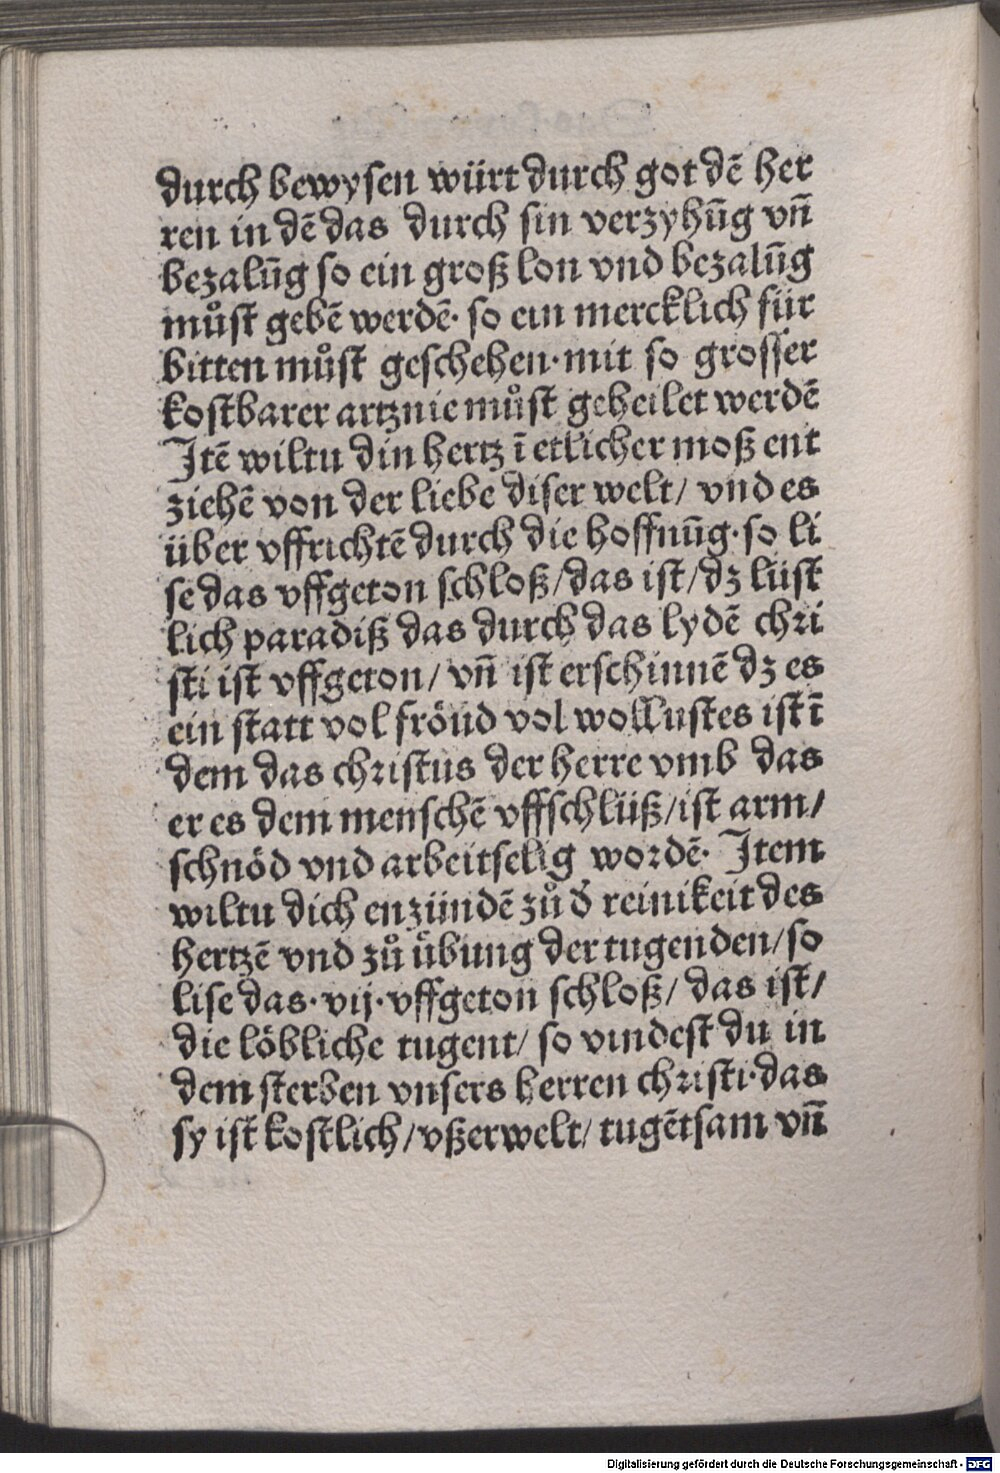 durch bewysen würt durch got dē her
ren in dē das durch sin verzyhūg vn̄
bezalūg so ein groß lon vnd bezalūg
můst gebē werdē· so ein mercklich für
bitten můst geschehen·mit so grosser
kostbarer artznie můst geheilet werdē
Jtē wiltu din hertz ī etlicher moß ent
ziehē von der liebe diser welt/ vnd es
über vffrichtē durch die hoffnūg·so li
se das vffgeton schloß/das ist/dz lüst
lich paradiß das durch das lydē chri
sti ist vffgeton/ vn̄ ist erschinnē dz es
ein statt vol fröud vol wollustes ist ī
dem das christus der herre vmb das
er es dem menschē vffschlüß/ist arm/
schnöd vnd arbeitselig wordē· Jtem
wiltu dich enzündē zů d̛ reinikeit des
hertzē vnd zů übung der tugenden/so
lise das·vij·vffgeton schloß/ das ist/
die löbliche tugent/ so vindest du in
dem sterben vnsers herren christi·das
sy ist kostlich/vßerwelt/ tugētsam vn̄
Digitalisierung gefördert durch die Deutsche Forschungsgemeinschaft - DFG